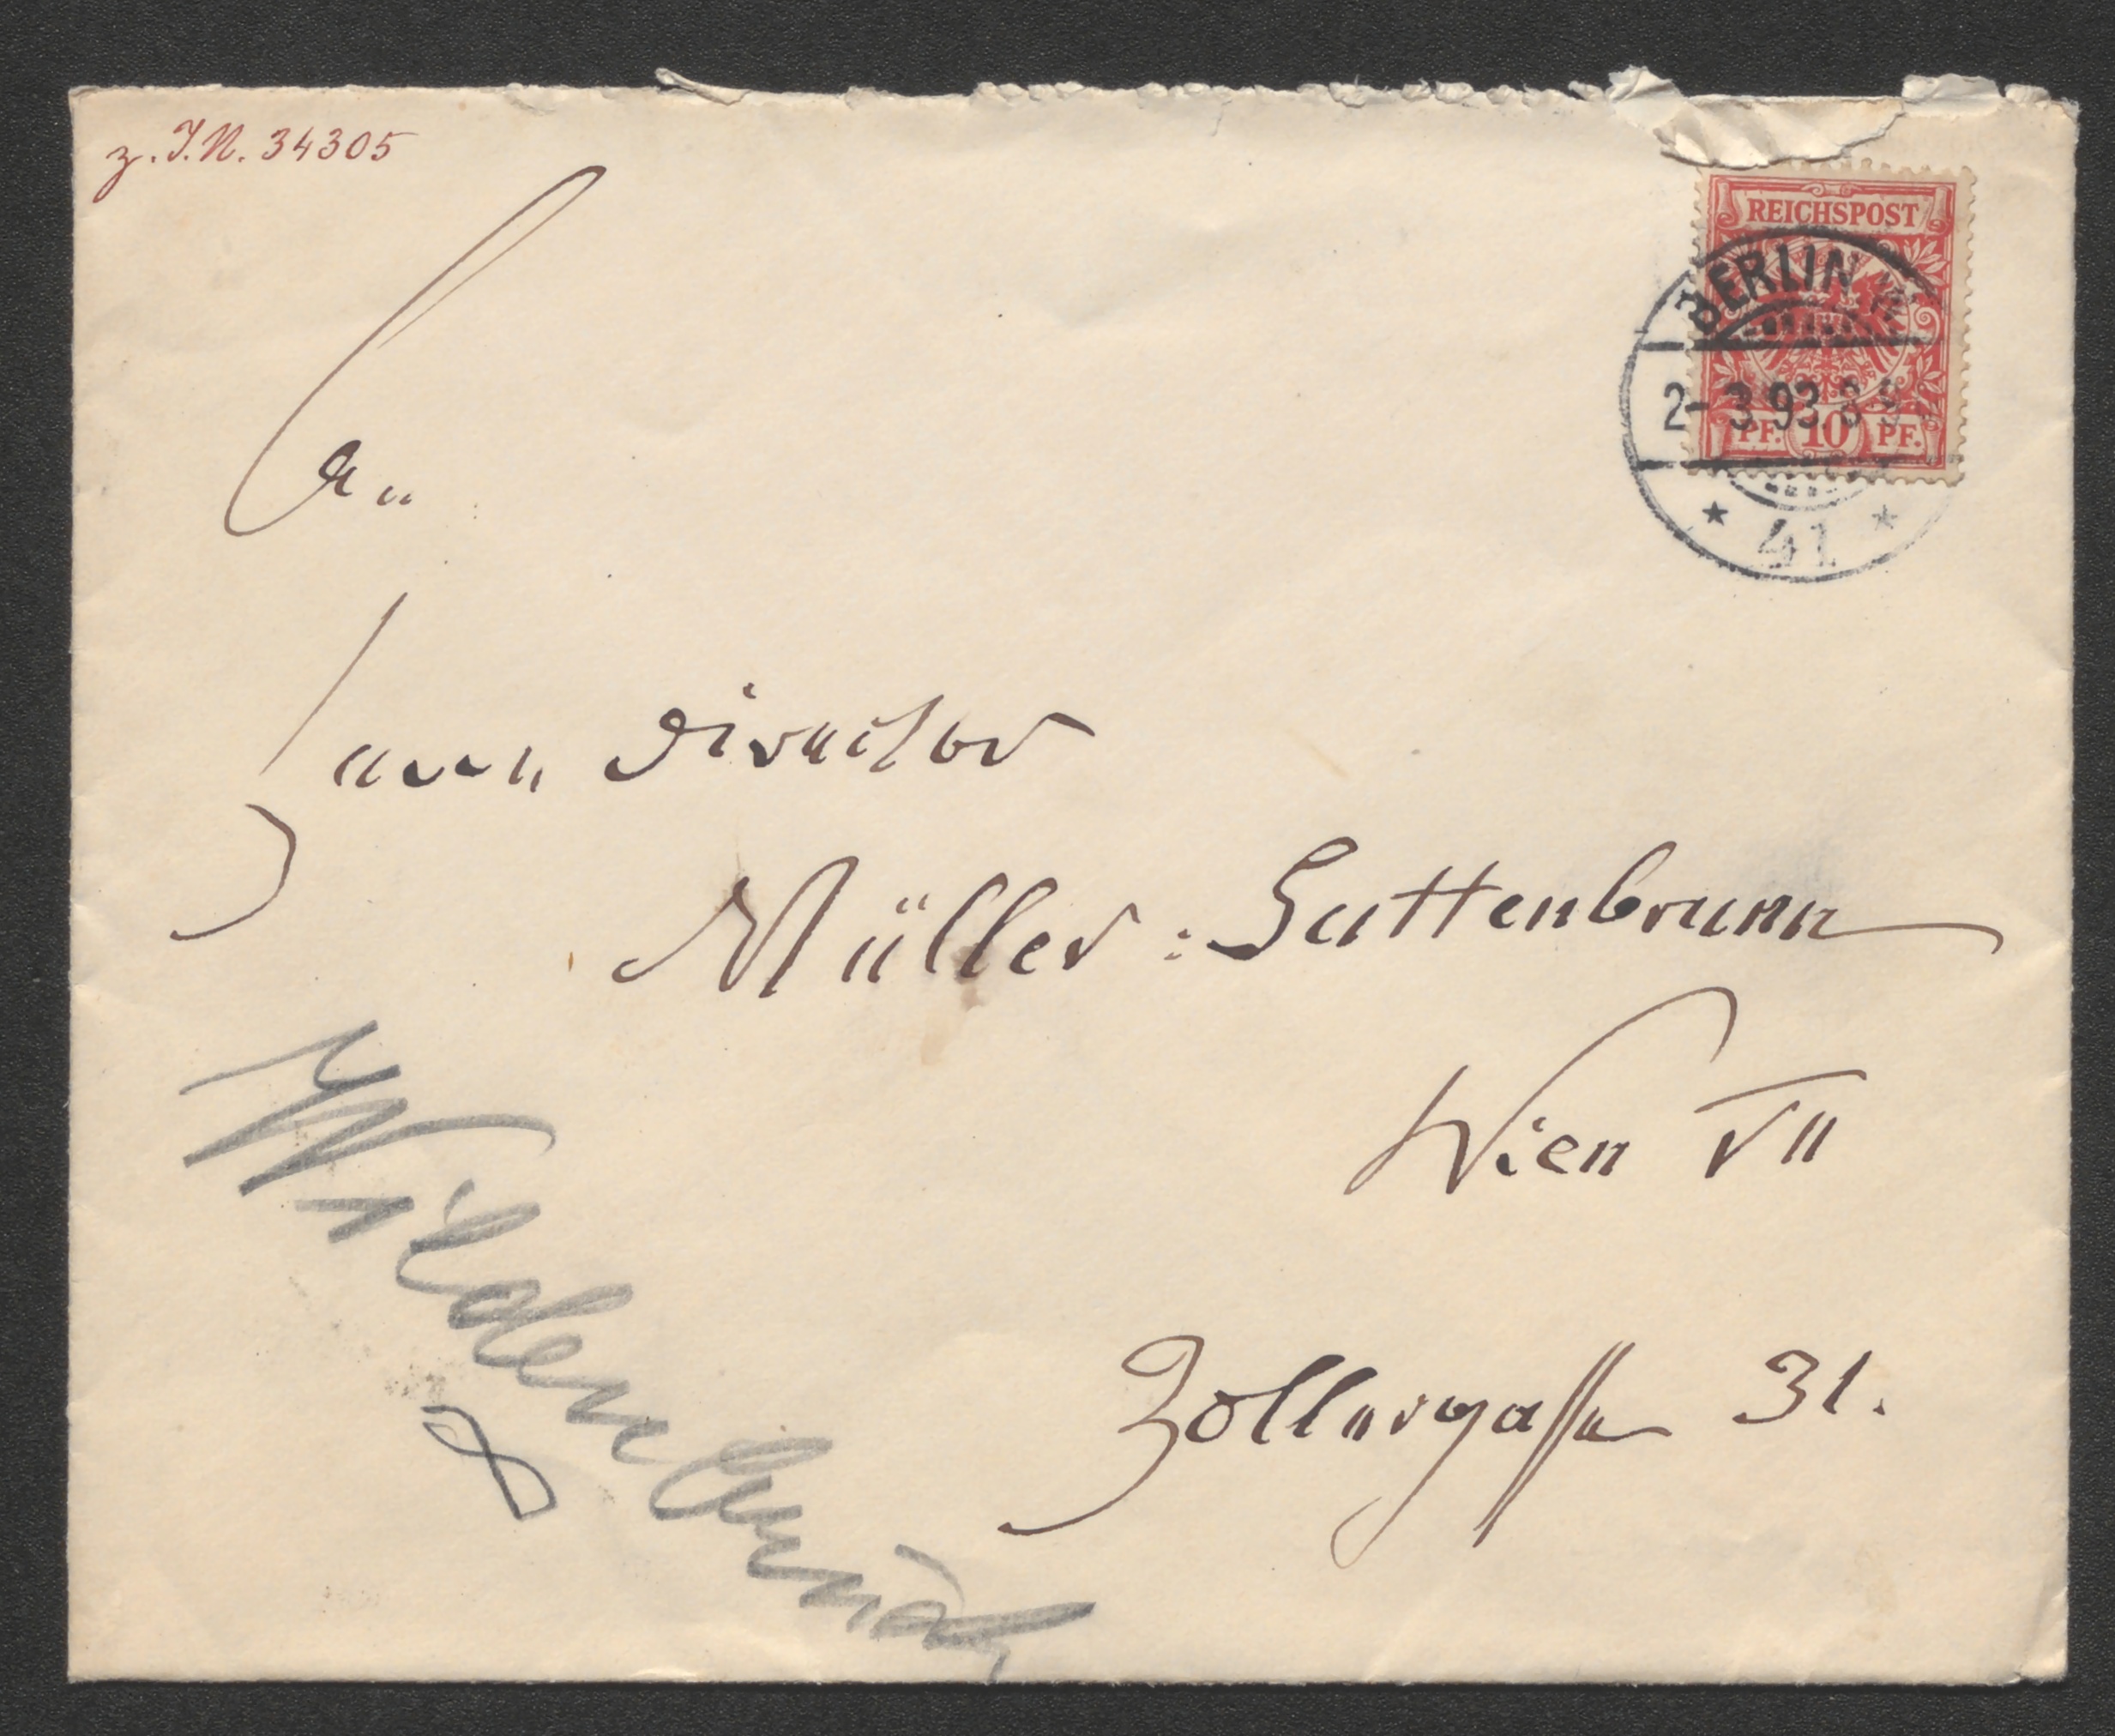 z. I.N. 34305
REICHSPOST
BERLIN W
2-3 93. 8-9
PF. 10 PF.
* 41 *
An
Herrn Director
Müller-Guttenbrunn
Wien VII
Zollergasse 31.
Wildenbruch